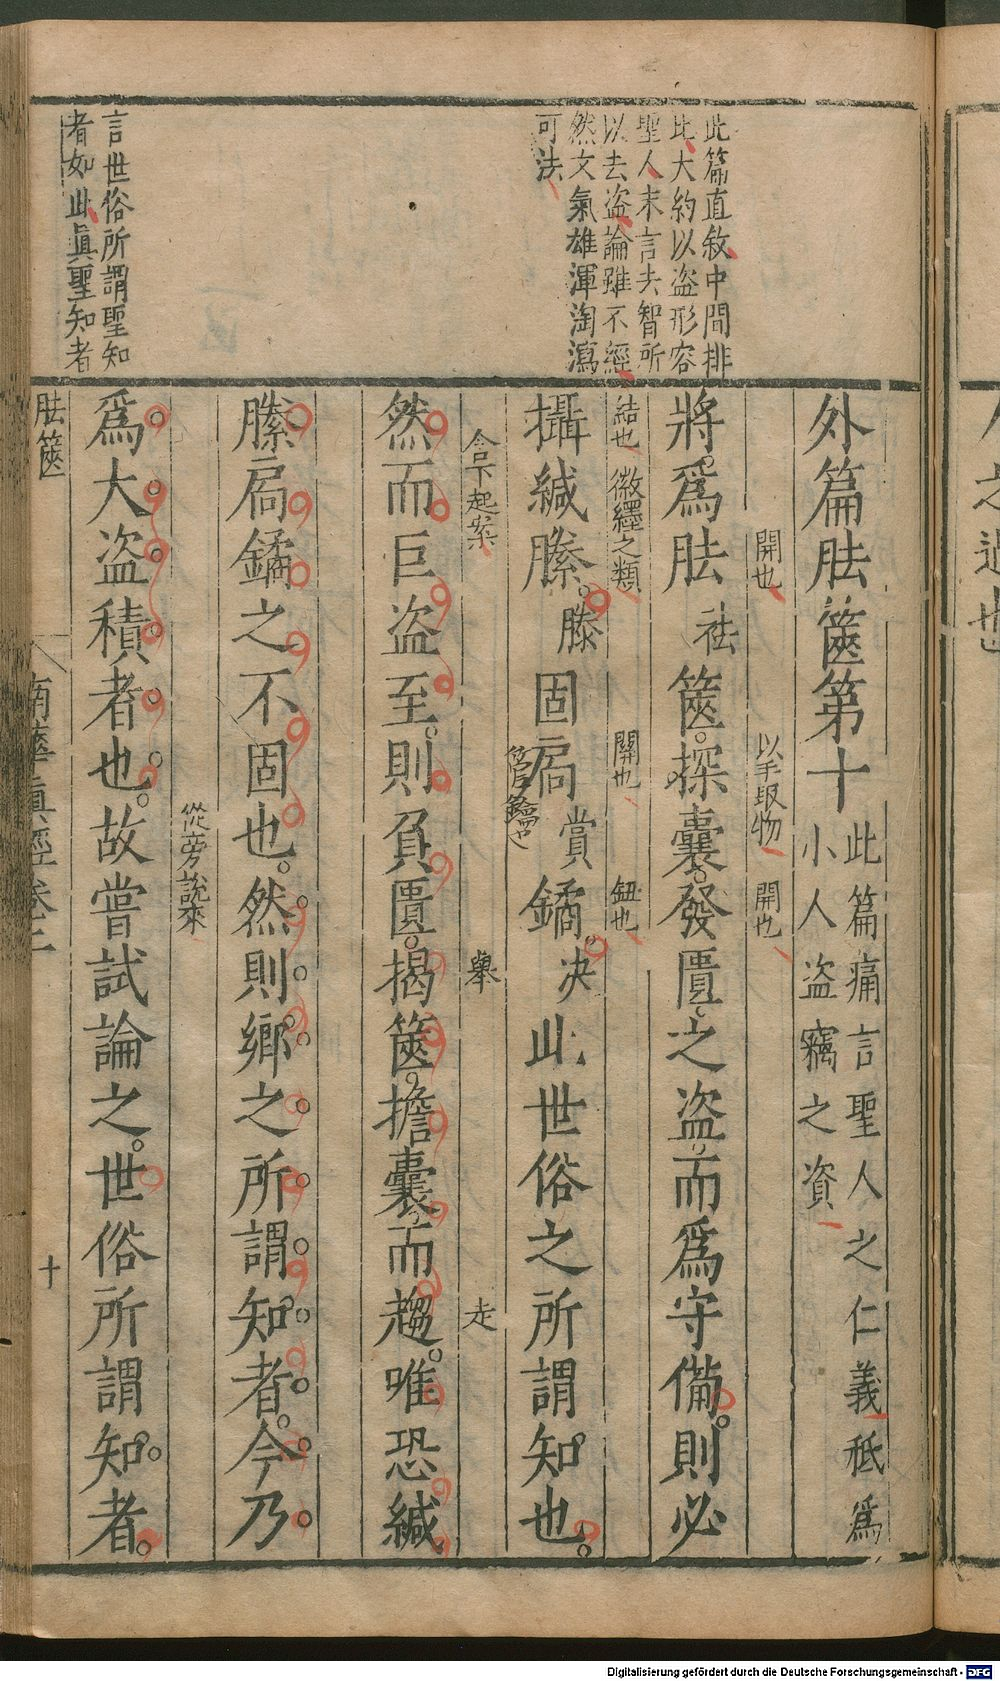 此篇直敘中間排
比大約以盜形容
聖人末言去智所
以去盜論雖不經
然文氣雄渾淘瀉
可法
言世俗所謂聖知
者如此真聖知者
外篇胠篋第十
此篇痛言聖人之仁義秪為
小人盜竊之資
開也 以手取物 開也
將爲胠祛篋探囊發匱之盜而爲守備則必
結也 徽纆之類 關也 鈕也
攝緘縢滕固扃賞鐍决此世俗之所謂知也
管鑰也
含下起案 舉 走
然而巨盜至則負匱揭篋擔囊而趨唯恐緘
縢扃鐍之不固也然則鄉之所謂知者今乃
從旁說來
爲大盜積者也故嘗試論之世俗所謂知者
胠篋
南華真經卷二
十
Digitalisierung gefördert durch die Deutsche Forschungsgemeinschaft - DFG